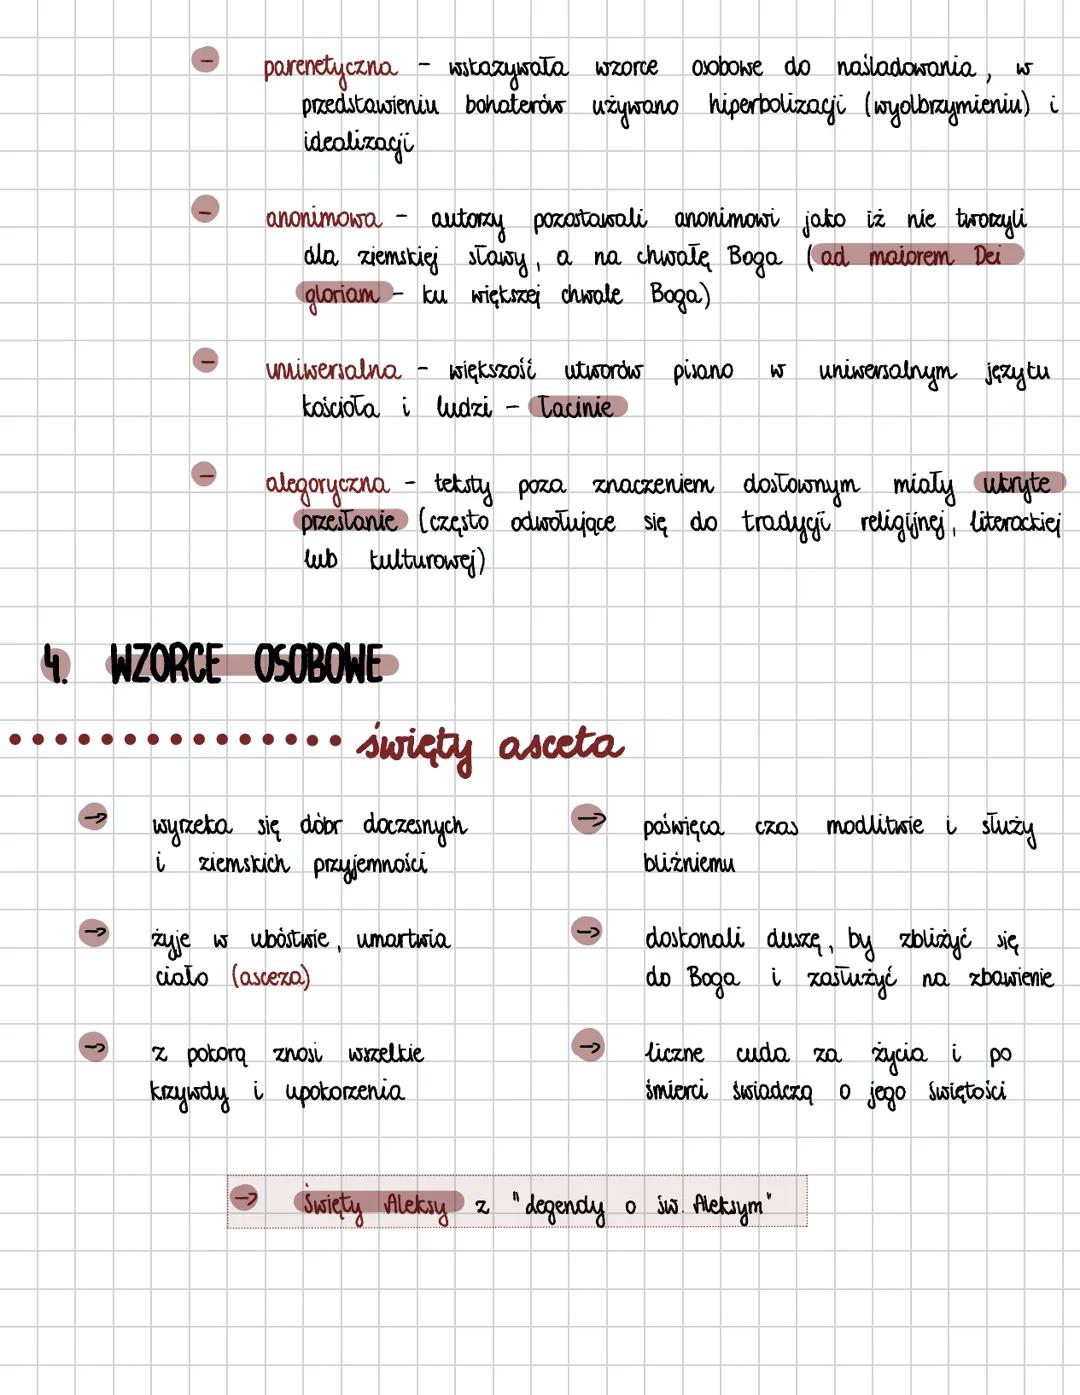 - parenetyczna - wskazywała wzorce osobowe do naśladowania, w
przedstawieniu bohaterów używano hiperbolizacji (wyolbrzymieniu) i
idealizacji
- anonimowa - autorzy pozostawali anonimowi jako iż nie tworzyli
dla ziemskiej sławy, a na chwałę Boga (ad maiorem Dei
gloriam - ku większej chwale Boga)
- uniwersalna - większość utworów pisano w uniwersalnym języku
kościoła i ludzi - łacinie
- alegoryczna - teksty poza znaczeniem dosłownym miały ukryte
przesłanie (często odwołujące się do tradycji religijnej, literackiej
lub kulturowej)
4. WZORCE OSOBOWE
święty asceta
→ wyrzeka się dóbr doczesnych
i ziemskich przyjemności
→ żyje w ubóstwie, umartwia
ciało (asceza)
→ z pokorą znosi wszelkie
krzywdy i upokorzenia
→ poświęca czas modlitwie i służy
bliźniemu
→ doskonali duszę, by zbliżyć się
do Boga i zasłużyć na zbawienie
→ liczne cuda za życia i po
śmierci świadczą o jego świętości
→ Święty Aleksy z "legendy o św. Aleksym"